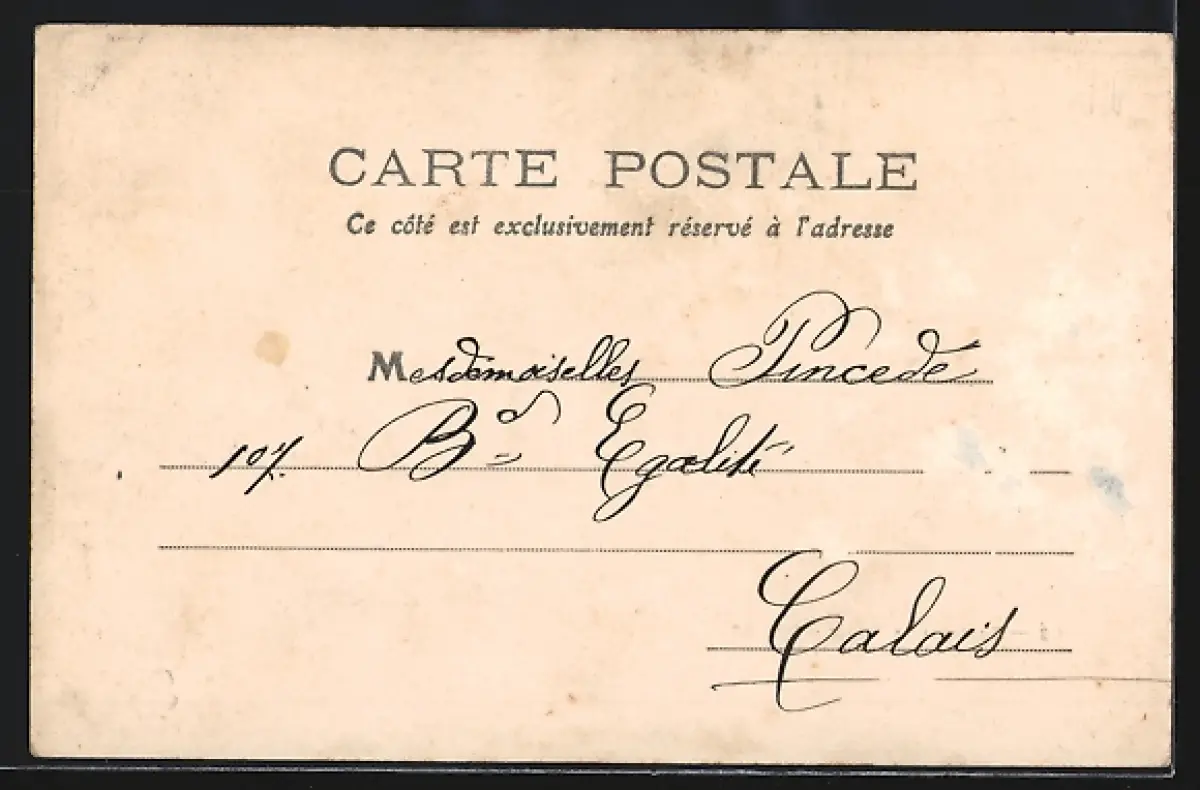 CARTE POSTALE
Ce côté est exclusivement réservé à l'adresse
Mesdemoiselles Pincedé
107. Bd Egalité
Calais